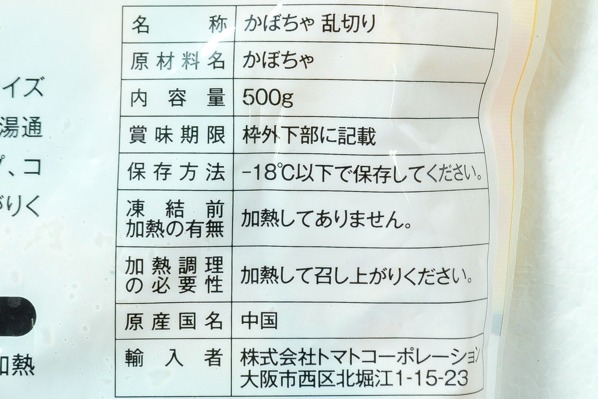 名称 かぼちゃ 乱切り
原材料名 かぼちゃ
内容量 500g
賞味期限 枠外下部に記載
保存方法 -18℃以下で保存してください。
凍結前
加熱の有無 加熱してありません。
加熱調理
の必要性 加熱して召し上がりください。
原産国名 中国
輸入者 株式会社トマトコーポレーション
大阪市西区北堀江1-15-23
イズ
湯通
プ、コ
がりく
加熱